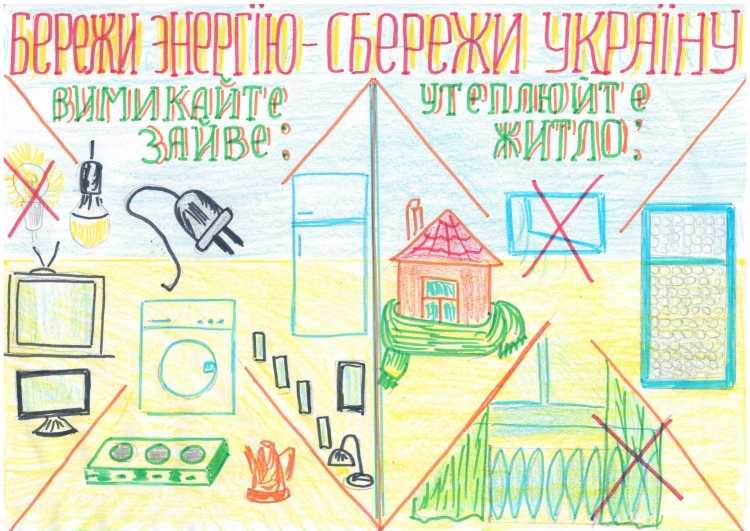 БЕРЕЖИ ЭНЕРГІЮ-ЗБЕРЕЖИ УКРАЇНУ
ВИМИКАЙТЕ
ЗАЙВЕ:
УТЕПЛЮЙТЕ
ЖИТЛО: